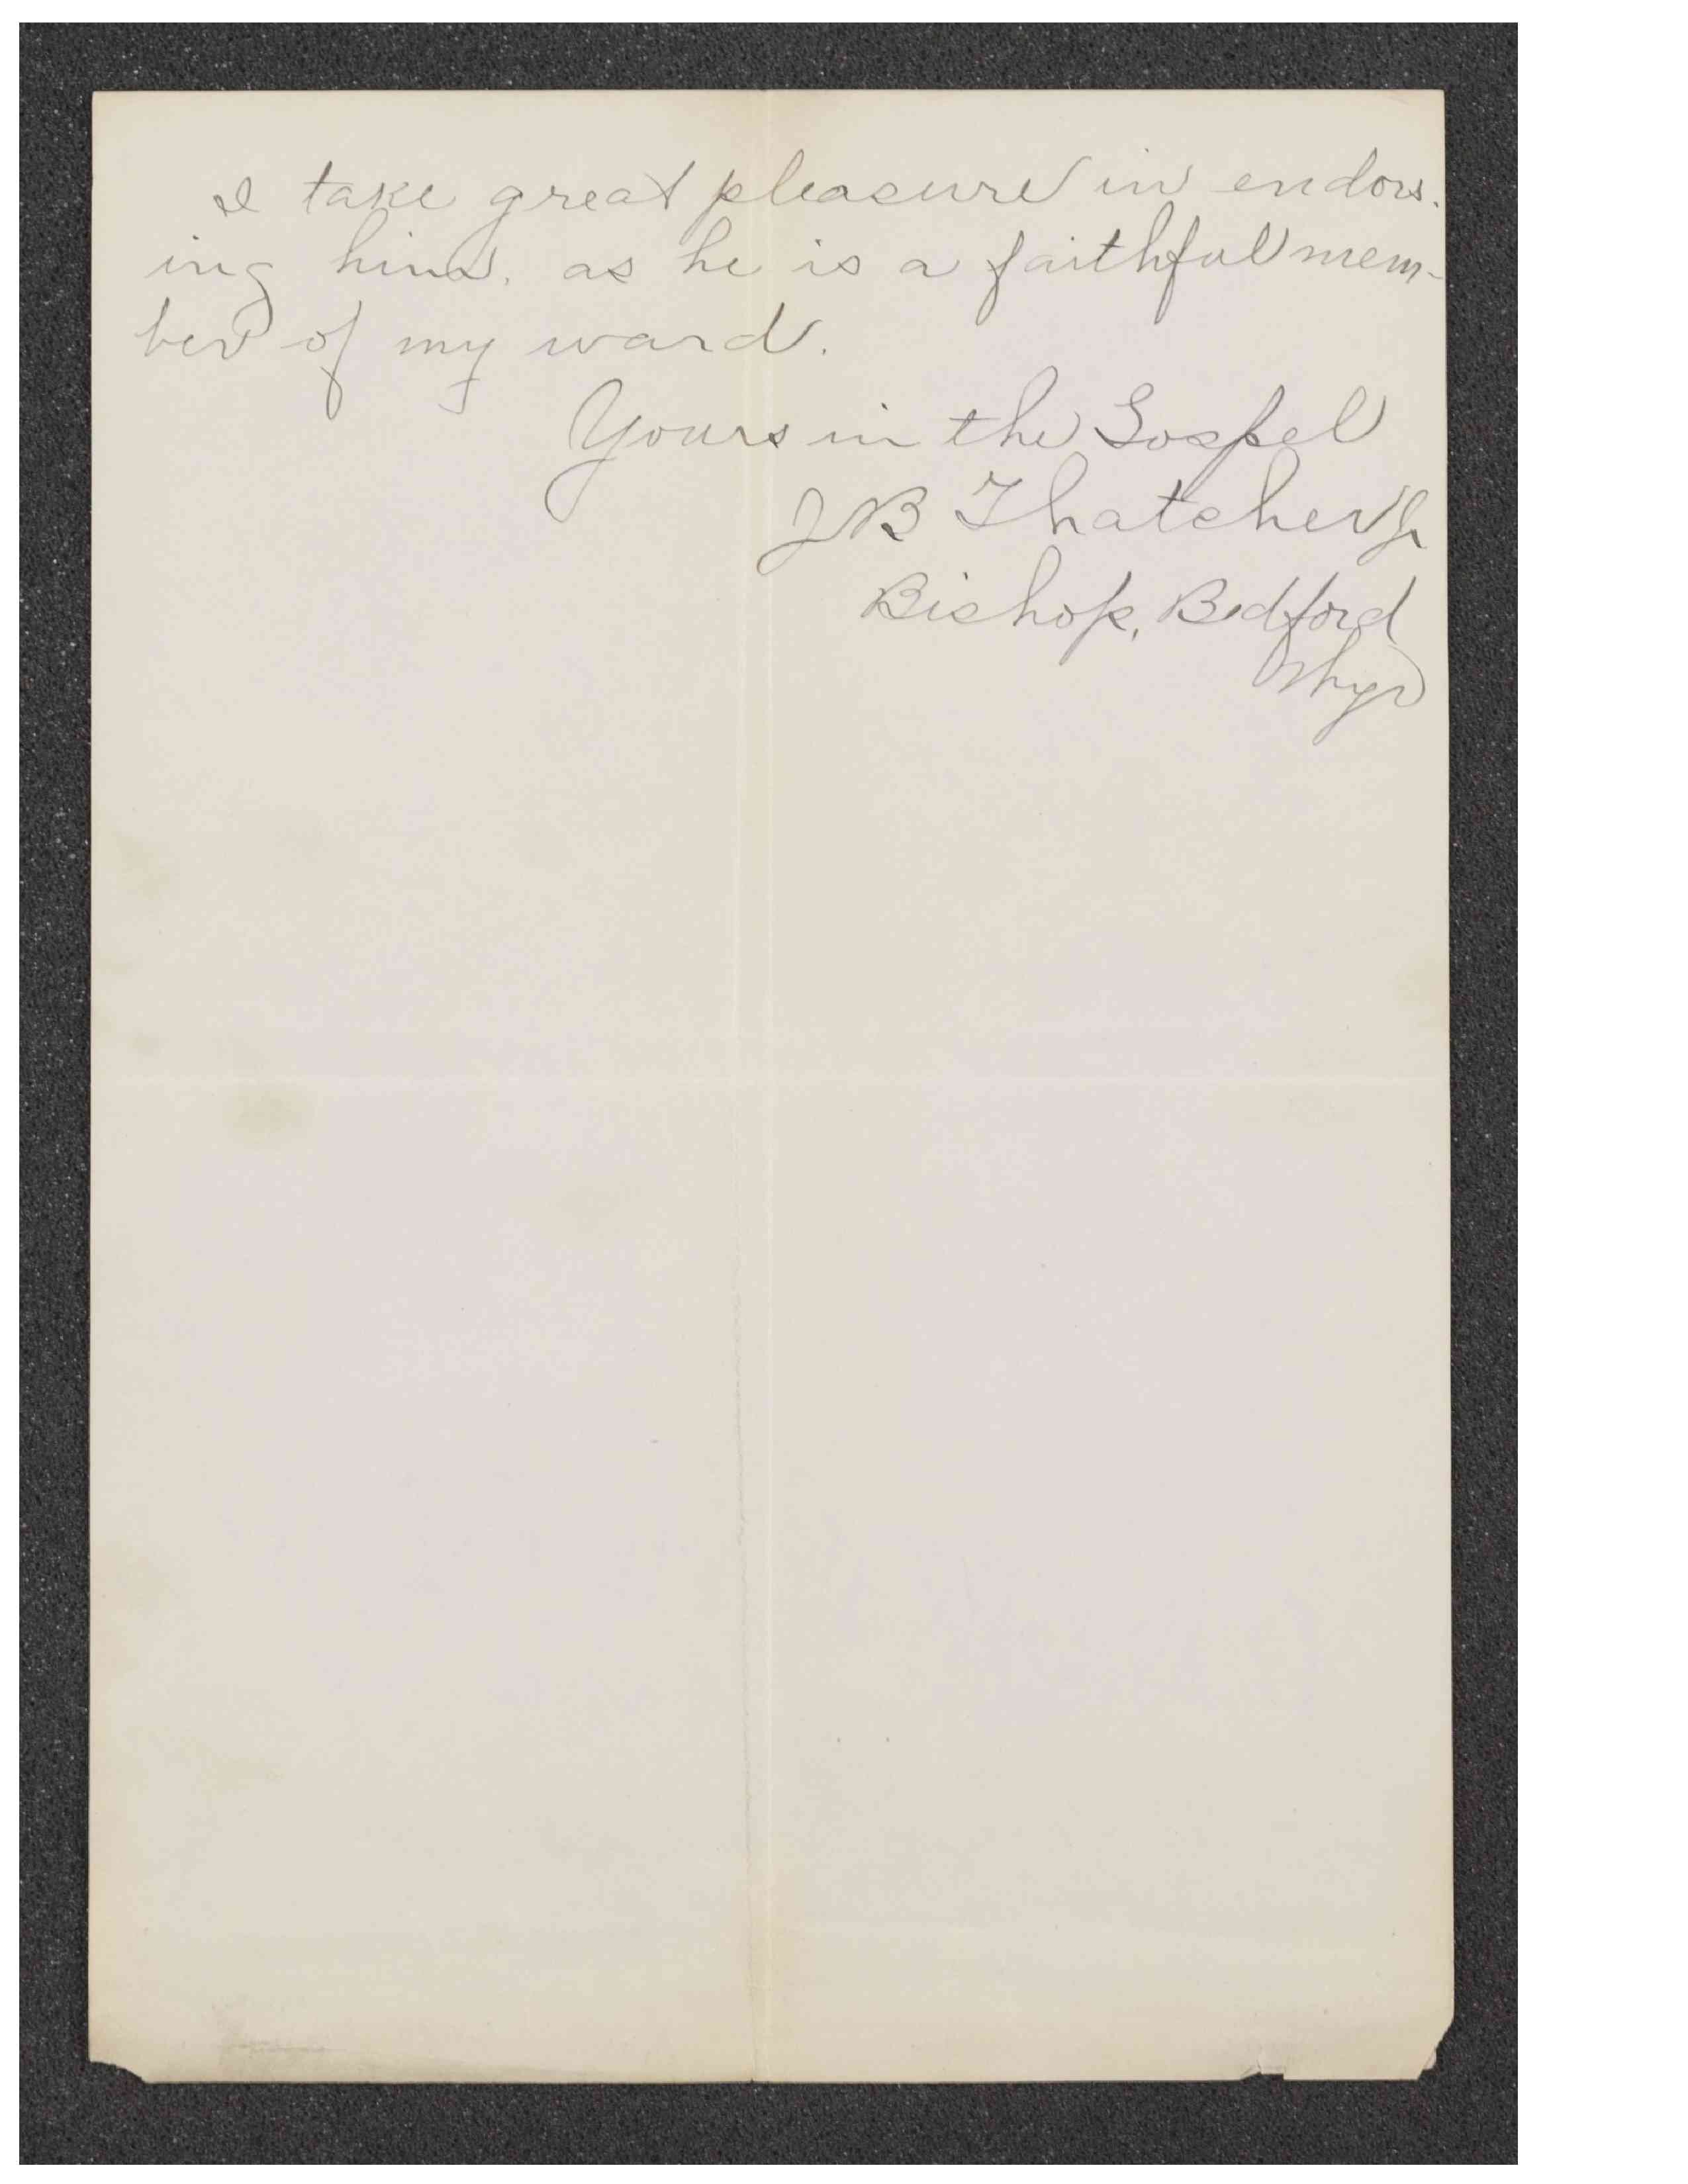 I take great pleasure in endors-
ing him, as he is a faithful mem-
ber of my ward.
Yours in the Gospel
J B Thatcher Jr
Bishop, Bedford
Wyo